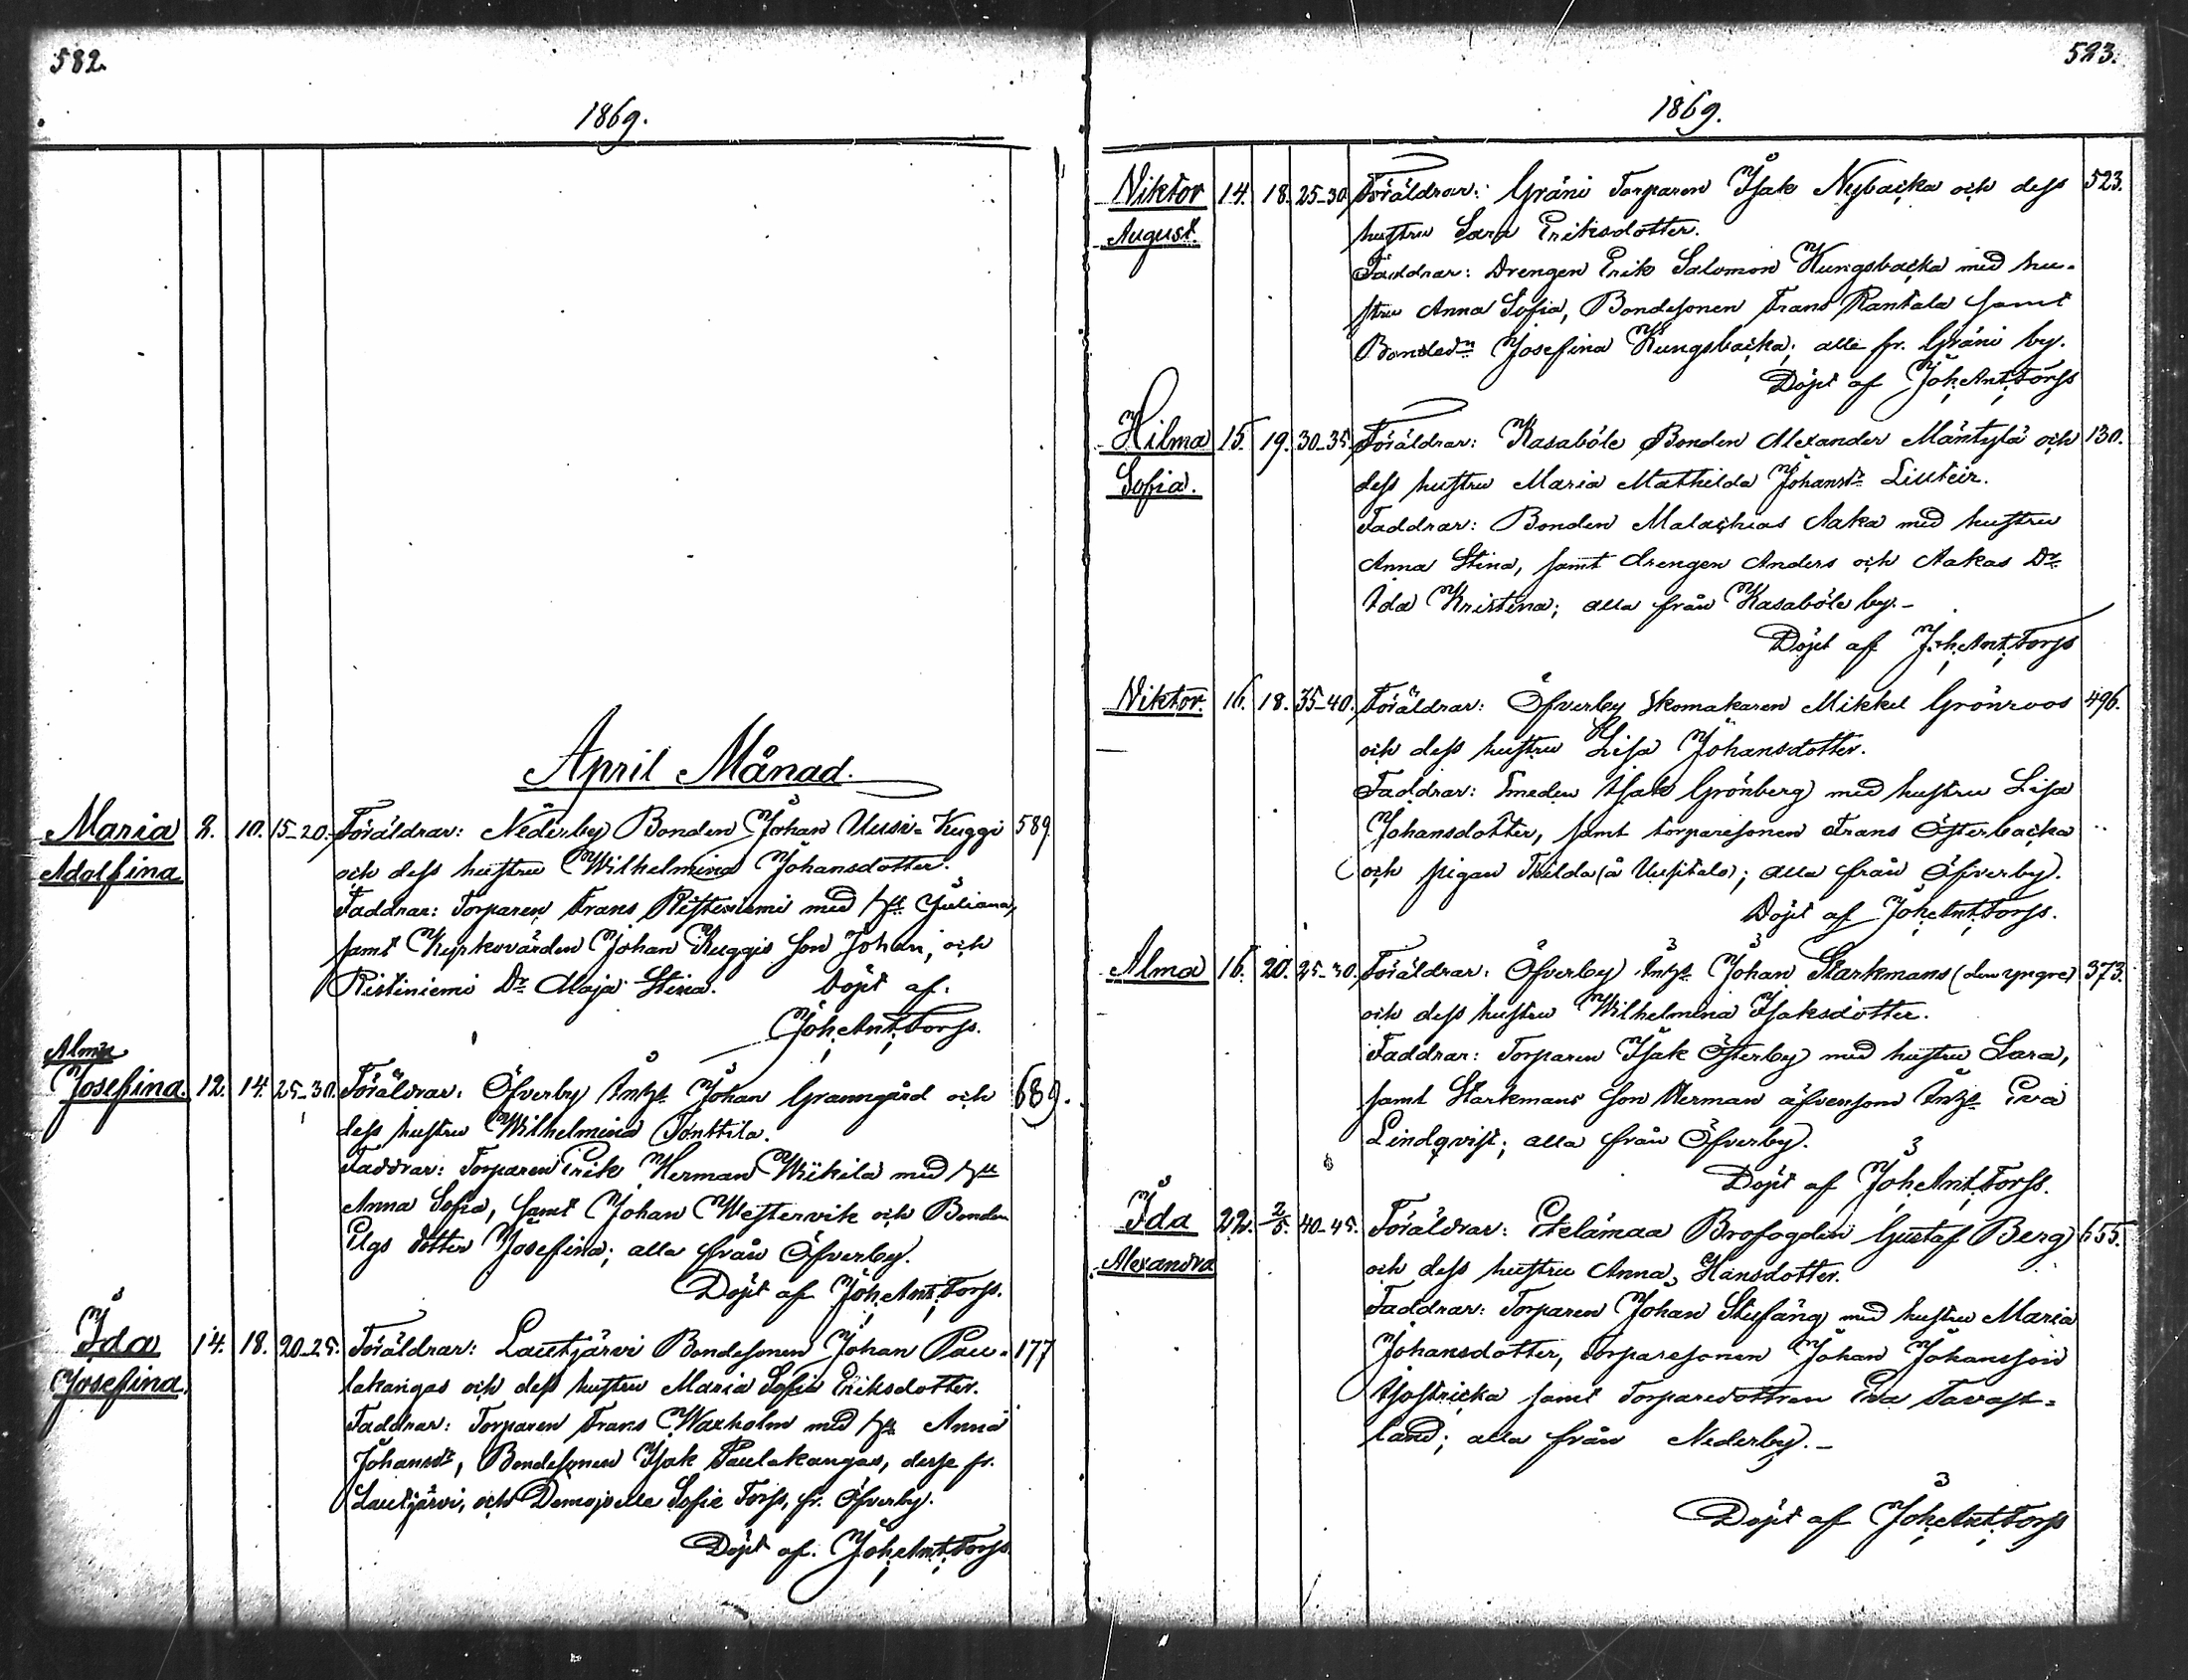 582.
1869.
April Månad.
Maria 8. 10. 15-20. Föräldrar: Nederby Bonden Johan Uusi-Kuggi 589
Adolfina och dess hustru Wilhelmina Johansdotter.
Faddrar: Torparen Frans Ristiniemi med hu Juliana,
samt Kyrkovärden Johan Kuggis son Johan, och
Ristiniemi Dr Maja Stina. Döpt af.
Joh: Ant: Forss.
Alma
Josefina. 12. 14. 25-30. Föräldrar: Öfverby Inhs Johan Granngård och 689.
dess hustru Wilhelmina Tonttila.
Faddrar: Torparen Erik Herman Wiikila med hu
Anna Sofia, samt Johan Westervik och Bonden
Elgs dotter Josefina; alla från Öfverby.
Döpt af Joh: Ant: Forss.
Ida 14. 18. 20-25. Föräldrar: Lautjärvi Bondesonen Johan Pau- 177
Josefina. lakangas och dess hustru Maria Sofia Eriksdotter.
Faddrar: Torparen Frans Waxholm med hu Anna
Johansdr, Bondesonen Isak Paulakangas, desse fr.
Lautjärvi, och Demoiselle Sofie Forss, fr. Öfverby.
Döpt af. Joh: Ant: Forss
523.
1869.
Viktor 14. 18. 25-30 Föräldrar: Gräni Torparen Isak Nybacka och dess 523.
August. hustru Sara Eriksdotter.
Faddrar: Drengen Erik Salomon Kungsbacka med hu-
stru Anna Sofia, Bondesonen Frans Rantala samt
Bondedn Josefina Kungsbacka; alla fr. Gräni by.
Döpt af Joh: Ant: Forss
Hilma 15. 19. 30-35. Föräldrar: Kasaböle Bonden Alexander Mäntylä och 130.
Sofia. dess hustru Maria Mathilda Johansdr
Faddrar: Bonden Malachias Aaka med hustru
Anna Stina, samt drengen Anders och Aakas Dr
Ida Kristina; alla från Kasaböle by.-
Döpt af Joh: Ant: Forss
Viktor. 16. 18. 35-40. Föräldrar: Öfverby skomakaren Mikkel Grönroos 496.
och dess hustru Lisa Johansdotter.
Faddrar: Smeden Isak Grönberg med hustru Lisa
Johansdotter, samt torparesonen Frans Österbacka
och pigan Thilda (å Uusitalo); alla från Öfverby.
Döpt af Joh: Ant: Forss.
Alma 16. 20. 25-30. Föräldrar: Öfverby Inhs Johan Starkmans (den yngre) 373.
och dess hustru Wilhelmina Isaksdotter.
Faddrar: Torparen Isak Österby med hustru Sara,
samt Starkmans son Herman äfvensom Inhs Eva
Lindqvist; alla från Öfverby.
Döpt af Joh: Ant: Forss.
Ida 22. 2/5. 40-45. Föräldrar: Etelämaa Brofogden Gustaf Berg 655.
Alexandra och dess hustru Anna Hansdotter.
Faddrar: Torparen Johan Stufäng med hustru Maria
Johansdotter, torparesonen Johan Johansson
samt Torparedottren Eva Tavast-
land; alla från Nederby.-
Döpt af Joh: Ant: Forss